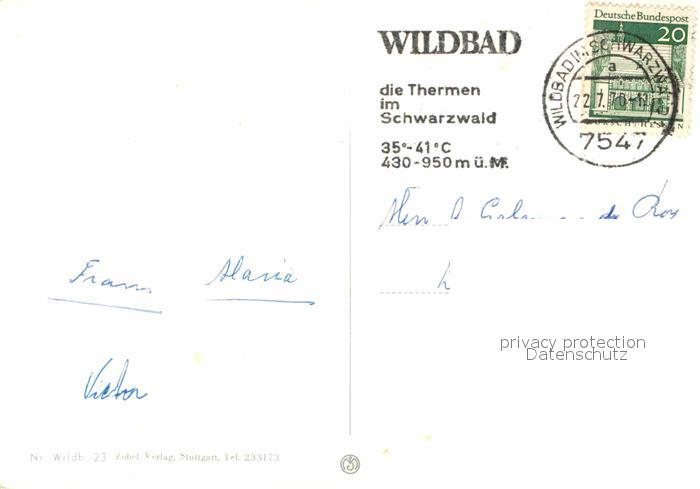 WILDBAD
die Thermen
im
Schwarzwald
35°-41°C
430-950 m ü. M.
Deutsche Bundespost
20
WILDBAD IM SCHWARZWALD
a
22.7.70-11
7547
de
Frans Maria
Victor
privacy protection
Datenschutz
Nr. Wildb. 23 Zobel-Verlag, Stuttgart, Tel. 233173